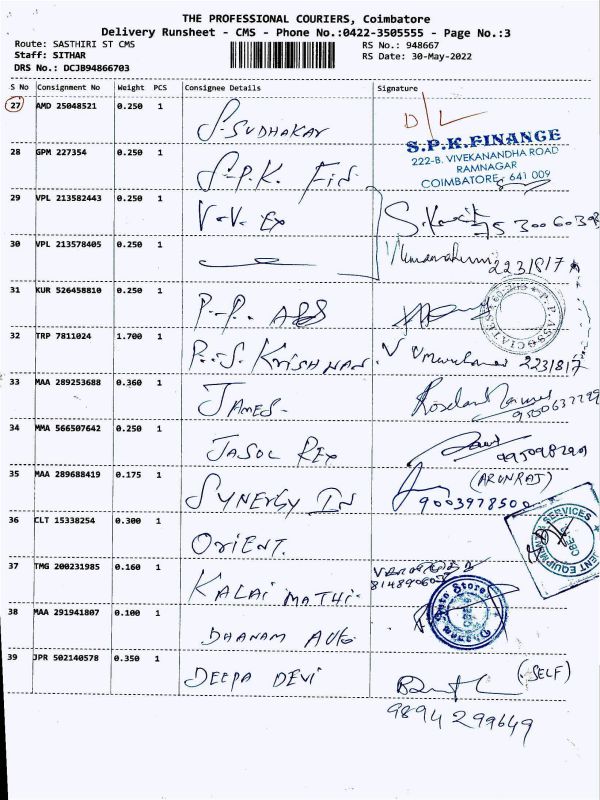 THE PROFESSIONAL COURIERS, Coimbatore
Delivery Runsheet - CMS - Phone No.:0422-3505555 - Page No.:3
Route: SASTHIRI ST CMS
RS No.: 948667
Staff: SITHAR
RS Date: 30-May-2022
DRS No.: DCJB94866703
S No Consignment No Weight PCS Consignee Details Signature
27 AMD 25048521 0.250 1 S-SUDHAKAR D/L
S.P.K.FINANCE
222-B, VIVEKANANDHA ROAD
RAMNAGAR
COIMBATORE - 641 009
28 GPM 227354 0.250 1 S-P.K. FIN
29 VPL 213582443 0.250 1 V-V. EX
30 VPL 213578405 0.250 1
2231817
31 KUR 526458810 0.250 1 P.P. ASS
32 TRP 7811024 1.700 1 KRISHNAN. 2231817
33 MAA 289253688 0.360 1 JAMES-
34 MMA 566507642 0.250 1 JASOL REX
35 MAA 289688419 0.175 1 SYNERGY IN (ARUNRAJ)
9003978500
36 CLT 15338254 0.300 1 ORIENT.
37 TMG 200231985 0.160 1 KALAI MATHI.
38 MAA 291941807 0.100 1 DHANAM AUTO
39 JPR 502140578 0.350 1 DEEPA DEVI (SELF)
9894299649